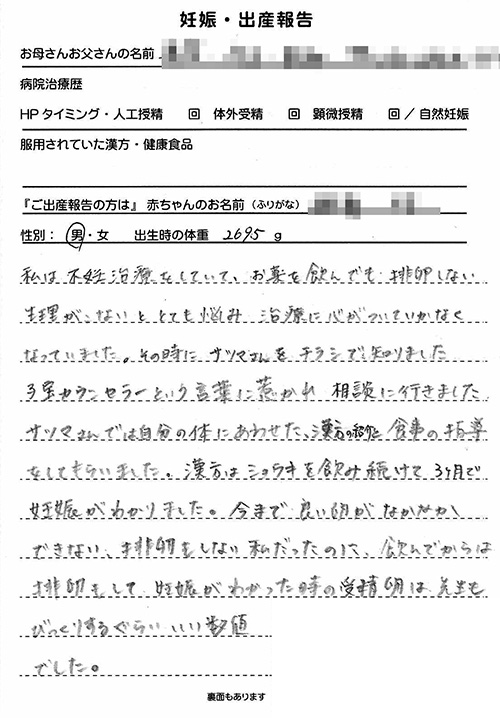 妊娠・出産報告
お母さんお父さんの名前
病院治療歴
HPタイミング・人工授精　回　体外受精　回　顕微授精　回／自然妊娠
服用されていた漢方・健康食品
『ご出産報告の方は』 赤ちゃんのお名前（ふりがな）
性別： 男・女　出生時の体重　2695 g
私は不妊治療をしていて、お薬を飲んでも排卵しない
生理がこないととても悩み 治療に心がついていかなく
なっていました。その時に サツマさんを チラシで知りました
子宝カウンセラーという言葉に惹かれ 相談に行きました
サツマさんでは自分の体にあわせた、漢方の紹介と 食事の指導
をしてもらいました。漢方は ショウキを飲み続けて 3ヶ月で
妊娠がわかりました。今まで 良い卵が なかなか
できない、排卵もしない 私だったのに、飲んでからは
排卵もして 妊娠がわかった時の受精卵は 先生も
びっくりするぐらい いい数値
でした。
裏面もあります